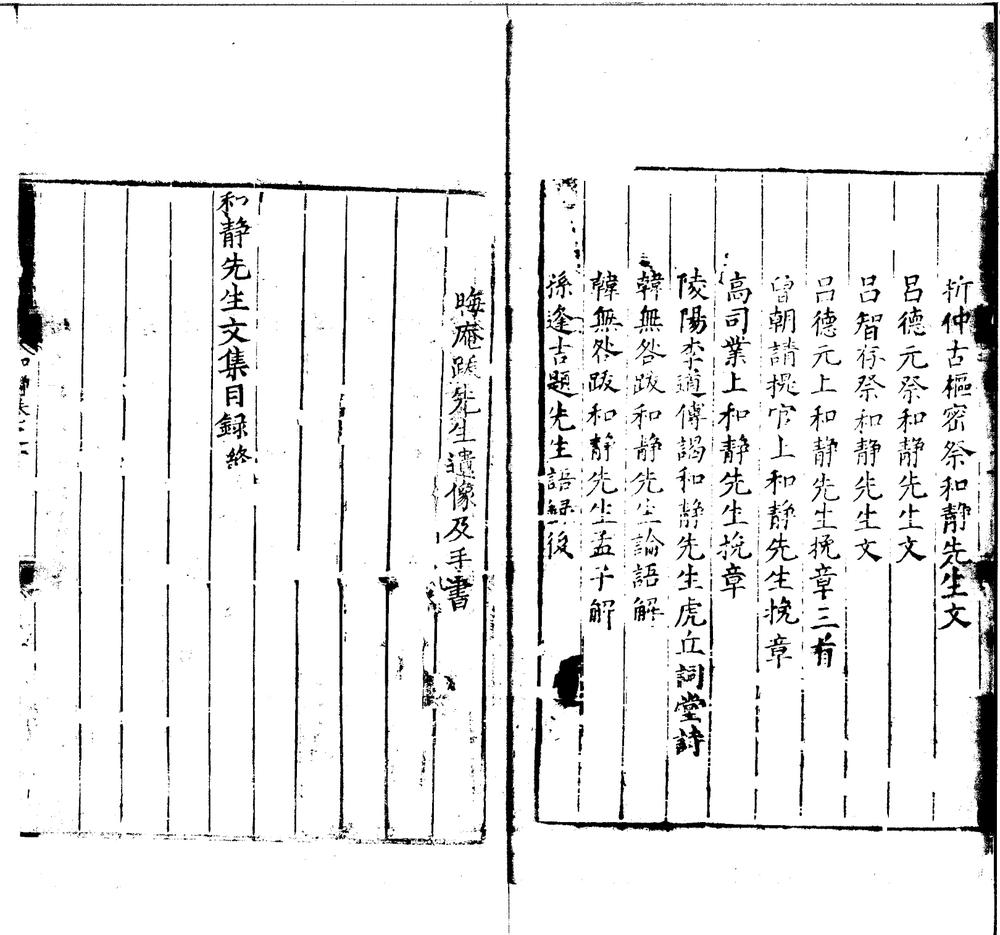 折仲古樞密祭和靜先生文
呂德元祭和靜先生文
呂智存祭和靜先生文
呂德元上和靜先生挽章三首
曾朝請提官上和靜先生挽章
高司業上和靜先生挽章
陵陽李道傳謁和靜先生虎丘祠堂詩
韓無咎跋和靜先生論語解
韓無咎跋和靜先生孟子解
孫逢吉題先生語録後
晦庵跋先生遺像及手書
和靜先生文集目録終